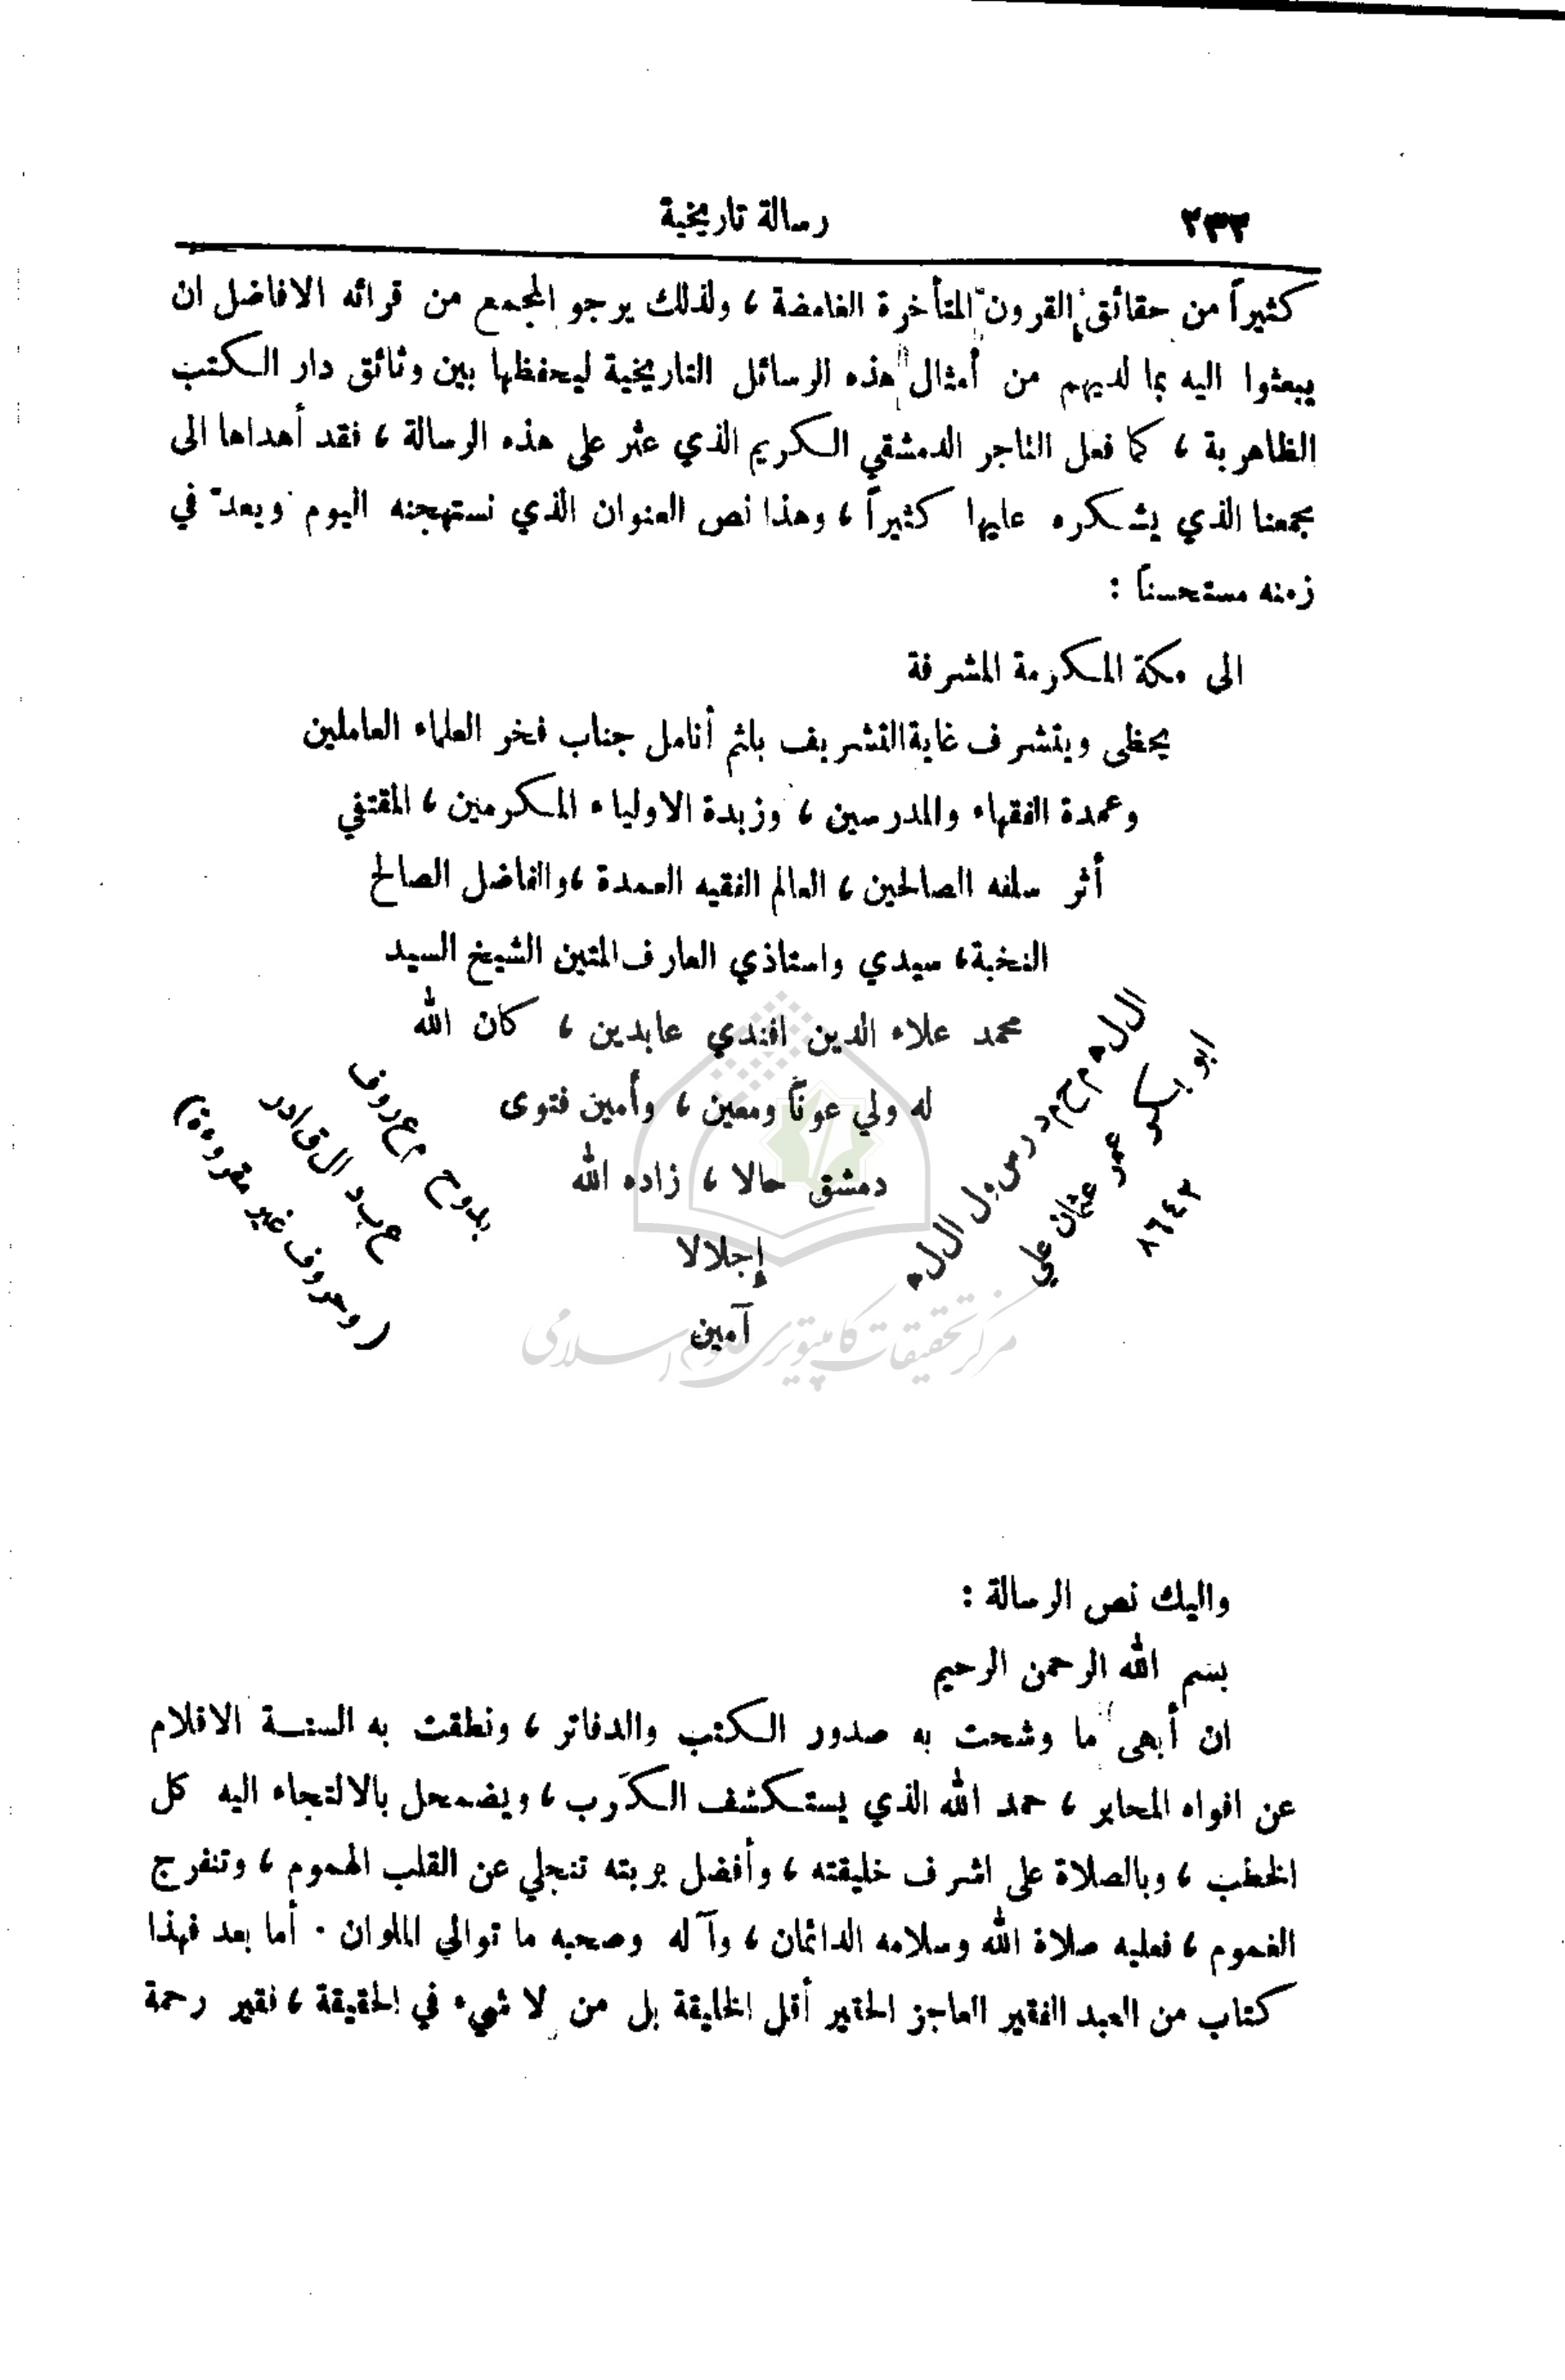 ٢٣٢ رسالة تاريخية
كثيراً من حقائق القرون المتأخرة الغامضة ، ولذلك يرجو المجمع من قرائه الافاضل ان
يبعثوا اليه بما لديهم من أمثال هذه الرسائل التاريخية ليحفظها بين وثائق دار الكتب
الظاهرية ، كما فعل التاجر الدمشقي الكريم الذي عثر على هذه الرسالة ، فقد أهداها الى
مجمعنا الذي يشكره عليها كثيراً ، وهذا نص العنوان الذي نستهجنه اليوم ويعد في
زمنه مستحسناً :
الى مكة المكرمة المشرفة
يحظى ويتشرف غاية التشريف بلثم أنامل جناب فخر العلماء العاملين
وعمدة الفقهاء والمدرسين ، وزبدة الاولياء المكرمين ، المقتفي
أثر سلفه الصالحين ، العالم الفقيه العمدة ، والفاضل الصالح
النخبة ، سيدي واستاذي العارف المتين الشيخ السيد
محمد علاء الدين افندي عابدين ، كان الله
له ولي عوناً ومعين ، وأمين فتوى
دمشق حالا ، زاده الله
إجلالا
آمين
ا ل ل ه م ح م د ر س و ل ا ل ل ه
ابو بكر عمر عثمان علي
٨٦٤٢
بدوح م ع روف
ع ب د ا ل ق ا د ر
( وحروف غير مقروءة )
مركز تحقيقات كامپيوتري علوم اسلامى
واليك نص الرسالة :
بسم الله الرحمن الرحيم
ان أبهى ما وشحت به صدور الكتب والدفاتر ، ونطقت به السنة الاقلام
عن افواه المحابر ، حمد الله الذي يستكشف الكرب ، ويضمحل بالالتجاء اليه كل
الخطب ، وبالصلاة على اشرف خليقته ، وأفضل بريته تنجلي عن القلب الهموم ، وتنفرج
الغموم ، فعليه صلاة الله وسلامه الدائمان ، وآله وصحبه ما توالي الملوان . أما بعد فهذا
كتاب من العبد الفقير العاجز الحقير أقل الخليقة بل من لا شيء في الحقيقة ، فقير رحمة